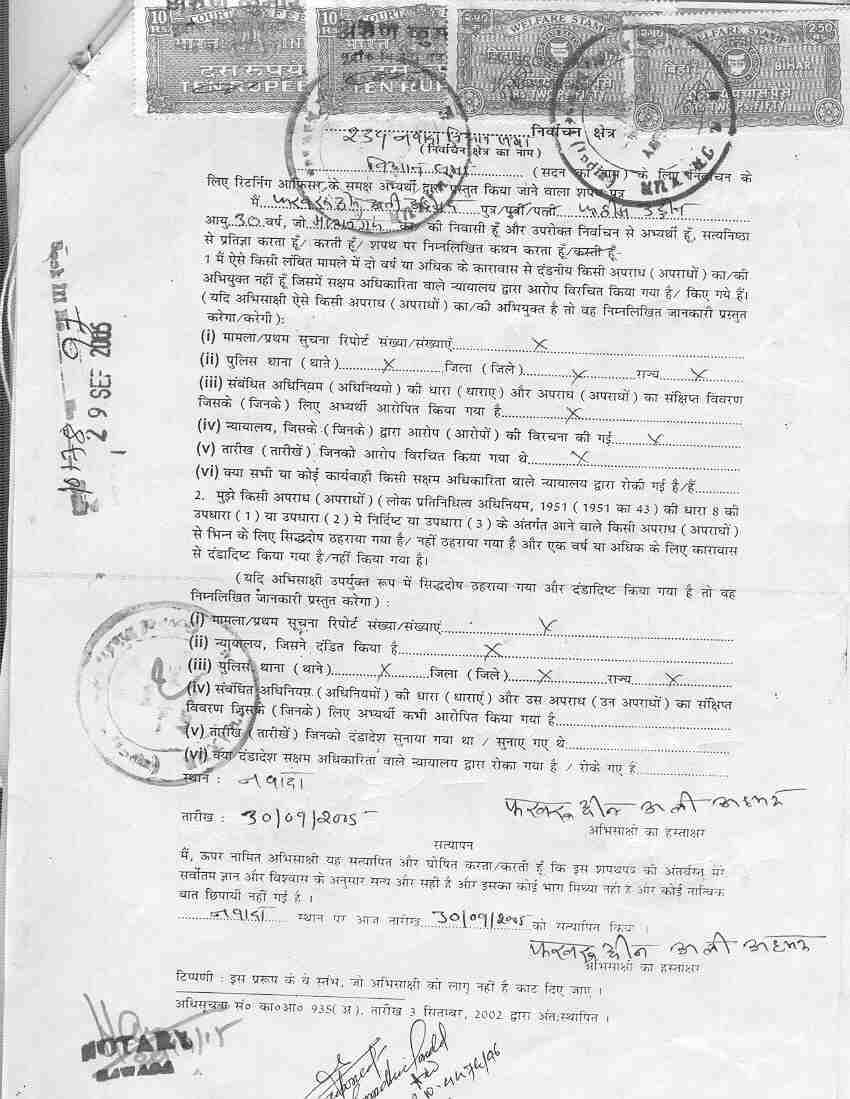 10 COURT FEE
RS
दस रूपये
TEN RUPEES
10 COURT FEE
RS
TEN RUPEES
WELFARE STAMP
WELFARE STAMP 2.50
BIHAR
२३५ नवादा विधान सभा निर्वाचन क्षेत्र
(निर्वाचन क्षेत्र का नाम)
विधान सभा (सदन का नाम) के लिए निर्वाचन के
लिए रिटर्निंग आफिसर के समक्ष अभ्यर्थी द्वारा प्रस्तुत किया जाने वाला शपथ पत्र
मैं अली अहमद पुत्र/पुत्री/पत्नी
आयु 30 वर्ष, जो का/ की निवासी हूँ और उपरोक्त निर्वाचन से अभ्यर्थी हूँ, सत्यनिष्ठा
से प्रतिज्ञा करता हूँ/ करती हूँ/ शपथ पर निम्नलिखित कथन करता हूँ/करती हूँ-
1 मैं ऐसे किसी लंबित मामले में दो वर्ष या अधिक के कारावास से दंडनीय किसी अपराध (अपराधों) का/की
अभियुक्त नहीं हूँ जिसमें सक्षम अधिकारिता वाले न्यायालय द्वारा आरोप विरचित किया गया है/ किए गये हैं।
(यदि अभिसाक्षी ऐसे किसी अपराध (अपराधों) का/की अभियुक्त है तो वह निम्नलिखित जानकारी प्रस्तुत
करेगा/करेगी):
(i) मामला/प्रथम सुचना रिपोर्ट संख्या/संख्याएं X
(ii) पुलिस थाना (थाने) X जिला (जिले) X राज्य X
(iii) संबंधित अधिनियम (अधिनियमो) की धारा (धाराए) और अपराध (अपराधों) का संक्षिप्त विवरण
जिसके (जिनके) लिए अभ्यर्थी आरोपित किया गया है X
(iv) न्यायालय, जिसके (जिनके) द्वारा आरोप (आरोपों) की विरचना की गई X
(v) तारीख (तारीखें) जिनको आरोप विरचित किया गया थे X
(vi) क्या सभी या कोई कार्यवाही किसी सक्षम अधिकारिता वाले न्यायालय द्वारा रोकी गई है/हैं
2. मुझे किसी अपराध (अपराधों) (लोक प्रतिनिधित्व अधिनियम, 1951 (1951 का 43) की धारा 8 की
उपधारा (1) या उपधारा (2) मे निर्दिष्ट या उपधारा (3) के अंतर्गत आने वाले किसी अपराध (अपराधों)
से भिन्न के लिए सिद्धदोष ठहराया गया है/ नहीं ठहराया गया है और एक वर्ष या अधिक के लिए कारावास
से दंडादिष्ट किया गया है/नहीं किया गया है।
(यदि अभिसाक्षी उपर्युक्त रूप में सिद्धदोष ठहराया गया और दंडादिष्ट किया गया है तो वह
निम्नलिखित जानकारी प्रस्तुत करेगा):
(i) मामला/प्रथम सूचना रिपोर्ट संख्या/संख्याएं X
(ii) न्यायालय, जिसने दंडित किया है X
(iii) पुलिस थाना (थाने) X जिला (जिले) X राज्य X
(iv) संबंधित अधिनियम (अधिनियमों) की धारा (धाराएं) और उस अपराध (उन अपराधों) का संक्षिप्त
विवरण जिसके (जिनके) लिए अभ्यर्थी कभी आरोपित किया गया है
(v) तारीख (तारीखें) जिनको दंडादेश सुनाया गया था / सुनाए गए थे
(vi) क्या दंडादेश सक्षम अधिकारिता वाले न्यायालय द्वारा रोका गया है / रोके गए है
स्थान : नवादा
तारीख : 30/09/2005
अली अहमद
अभिसाक्षी का हस्ताक्षर
सत्यापन
मैं, ऊपर नामित अभिसाक्षी यह सत्यापित और घोषित करता/करती हूँ कि इस शपथपत्र की अंतर्वस्तु मेरे
सर्वोतम ज्ञान और विश्वास के अनुसार सत्य और सही है और इसका कोई भाग मिथ्या नहीं है और कोई तात्विक
बात छिपायी नहीं गई है ।
नवादा स्थान पर आज तारीख 30/09/2005 को सत्यापित किया ।
अली अहमद
अभिसाक्षी का हस्ताक्षर
टिप्पणी : इस प्ररूप के वे स्तंभ, जो अभिसाक्षी को लागू नहीं है काट दिए जाए ।
अधिसूचना सं० का०आ० 935(अ), तारीख 3 सितम्बर, 2002 द्वारा अंतःस्थापित ।
NOTARY
NAWADA
29 SEP 2005